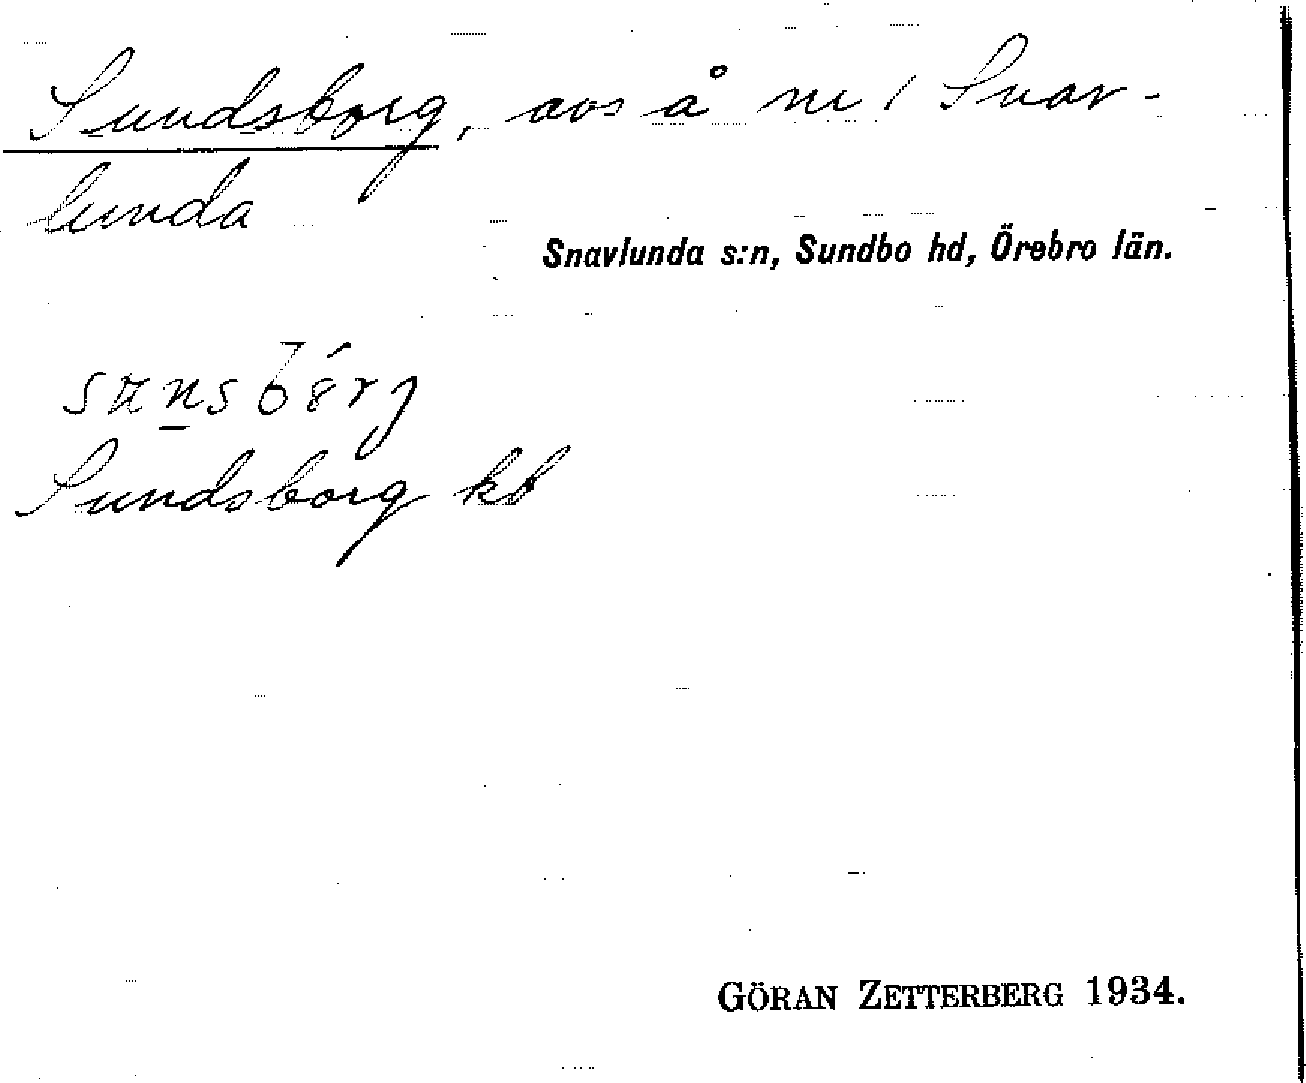 Sundsborg, avs å nr 1 Snav-
lunda
Snavlunda s:n, Sundbo hd, Örebro län.
Sundsborg kb
GÖRAN ZETTERBERG 1934.